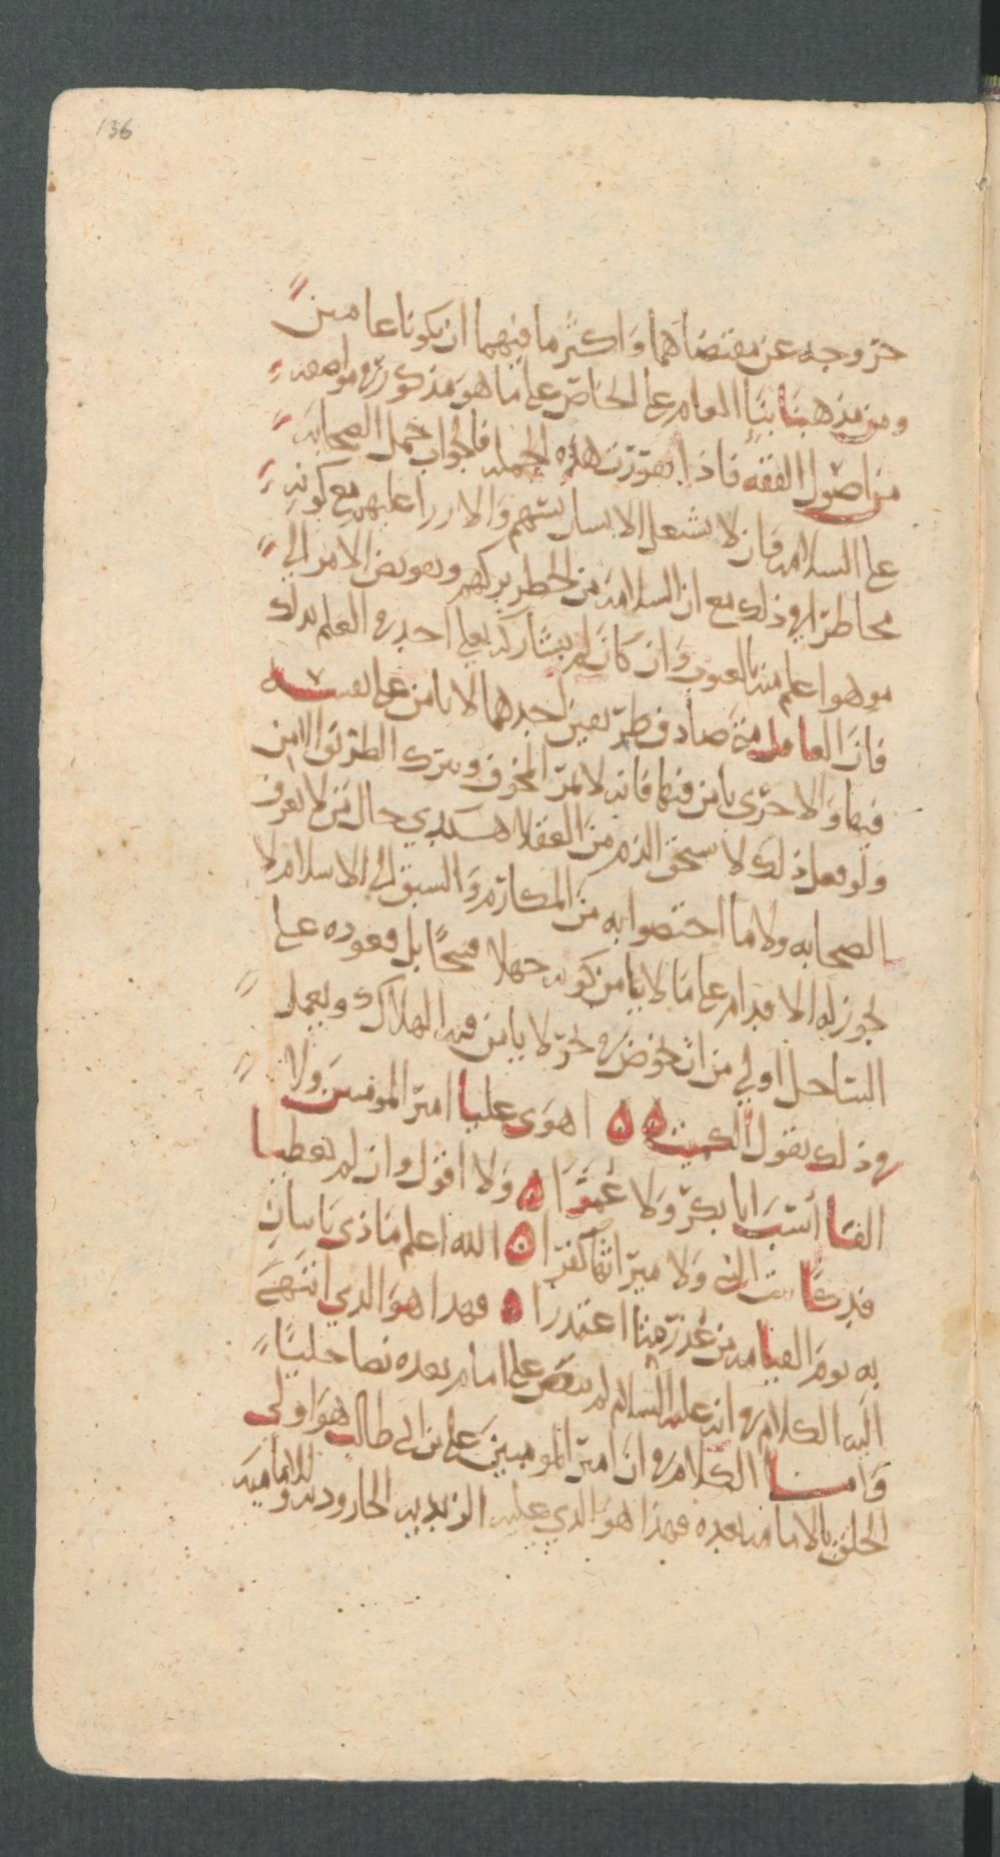 136
خروجه عن مقتضاهما واكثر ما فيهما ان يكونا عامين
ومن مذهبنا بنا العام على الخاص على ما هو مذكور في مواضعه
من اصول الفقه فاذا تقررت هذه الجمله فالجواب حمل الصحابه
على السلامه وان لا يشعل الانسان بسبهم والازرا عليهم مع كونه
مخاطرا في ذلك مع ان السلامه من الخطر بتركهم وتفويض الامر الى
من هو اعلم منه بالغيوب وان كان لم يشاركه تعلى احد في العلم بذلك
فان العاقل متى صادف طريقين احدهما لا يامن على نفسه
فيها والاخرى يامن فيها فانه لا يمر المخوف ويترك الطريق الامن
ولو فعل ذلك لاستحق الذم من العقلا حال من لا يعرف
الصحابه ولا ما اختصوا به من المكارم والسبق الى الاسلام لا
يجوز له الاقدام على ما لا يامن كونه جهلا قبيحا بل قعوده على
الساحل اولى من ان يخوض في بحر لا يامن فيه الهلاك
وفي ذلك يقول الكميت ه ه اهوى عليا امير المومنين ولا
الفا اسب ابا بكر ولا عمرا ه ولا اقول وان لم يعطيا
فدكا بنت النبي ولا ميراثها كفرا ه الله اعلم ماذى ياتيان
به يوم القيامه من عذر اذا اعتذرا ه فهذا هو الذي انتهى
اليه الكلام في انه عليه السلام لم ينص على امام بعده نصا جليا
واما الكلام في ان امير المومنين علي بن ابي طالب هو اولى
الخلق بالامامه بعده فهذا هو الذي عليه الزيديه الجاروديه والاماميه